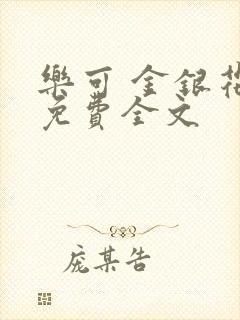 樂可 金銀花
免費全文
庞某告